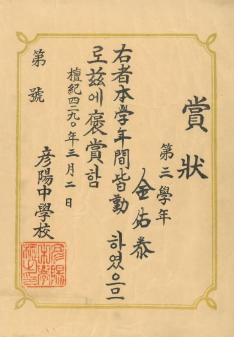 賞狀
第三學年
金佑泰
右者本學年間皆勤하였음므
로玆에褒賞함
檀紀四二九〇年三月二日
彦陽中學校
第 號